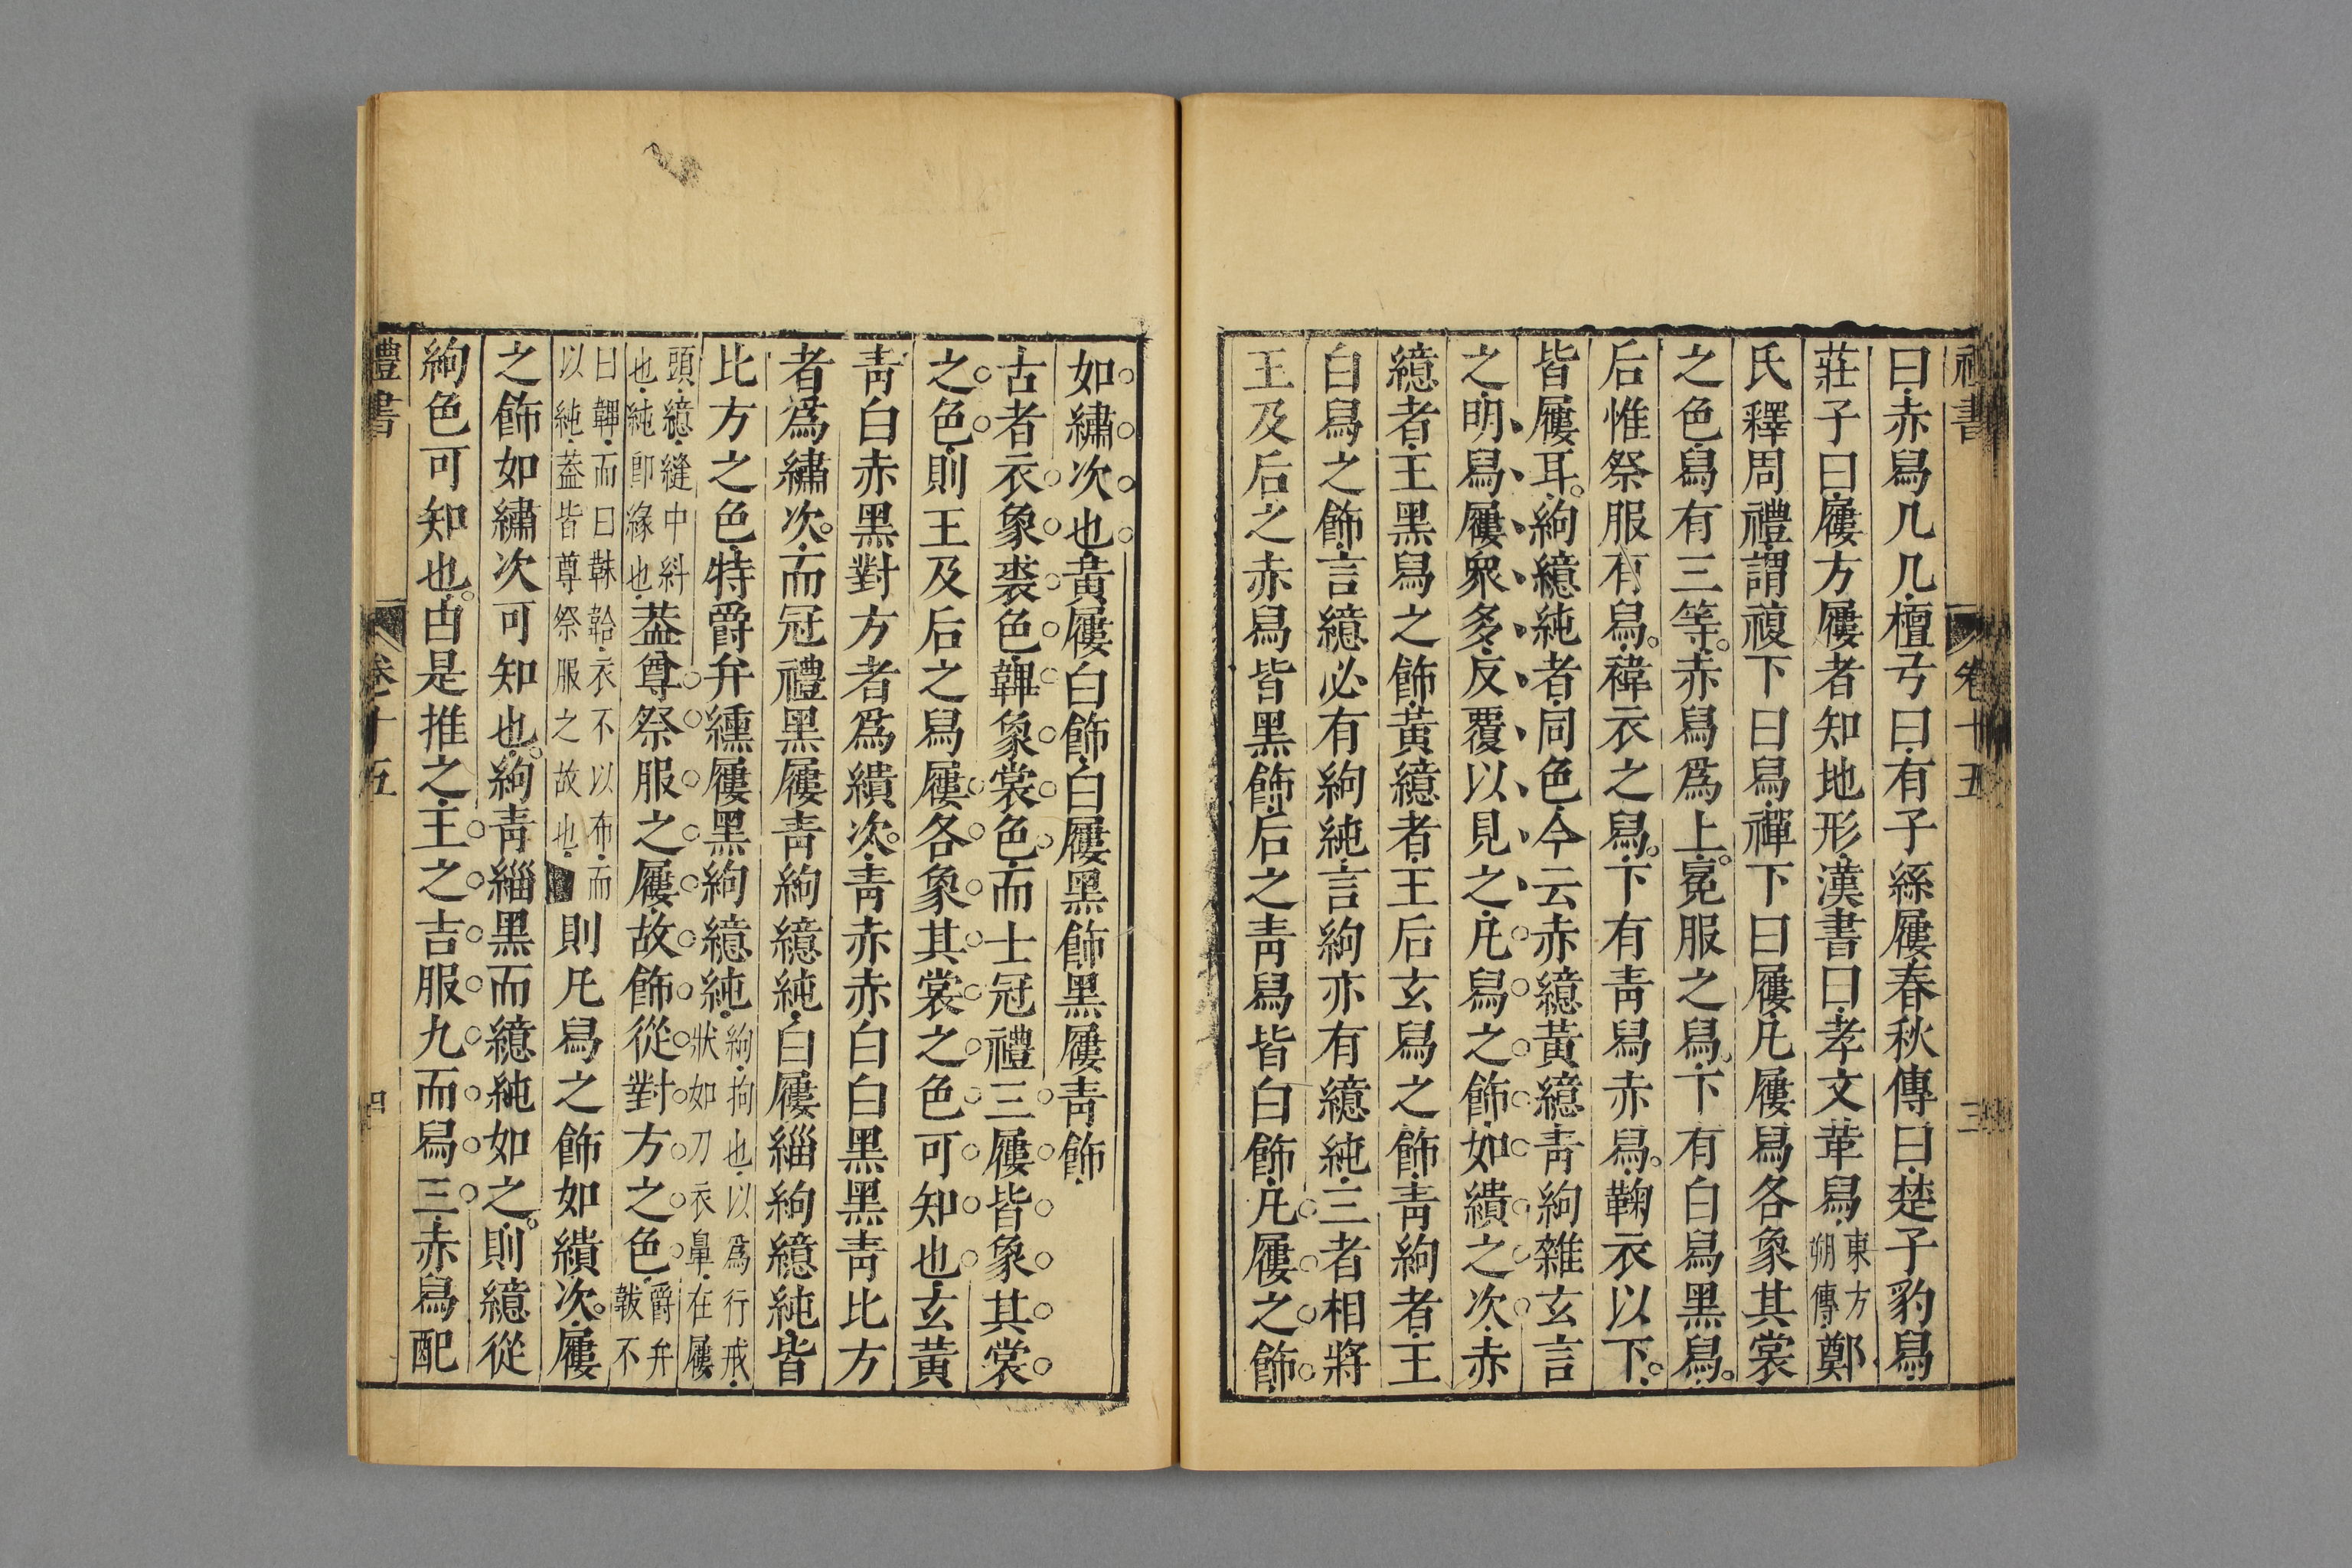 禮書 卷十五 三
曰赤舄几几檀弓曰有子絲屨春秋傳曰楚子豹舄
莊子曰屨方屨者知地形漢書曰孝文革舄東方朔傳鄭
氏釋周禮謂複下曰舄襌下曰屨凡屨舄各象其裳
之色舄有三等赤舄爲上冕服之舄下有白舄黑舄
后惟祭服有舄褘衣之舄下有青舄赤舄鞠衣以下
皆屨耳絇繶純者同色今云赤繶黃繶青絇雜玄言
之明舄屨衆多反覆以見之凡舄之飾如繢之次赤
繶者王黑舄之飾黃繶者王后玄舄之飾青絇者王
白舄之飾言繶必有絇純言絇亦有繶純三者相將
王及后之赤舄皆黑飾后之青舄皆白飾凡屨之飾
如繡次也黃屨白飾白屨黑飾黑屨青飾
古者衣象裘色韠象裳色而士冠禮三屨皆象其裳
之色則王及后之舄屨各象其裳之色可知也玄黃
青白赤黑對方者爲繢次青赤赤白白黑黑青比方
者爲繡次而冠禮黑屨青絇繶純白屨緇絇繶純皆
比方之色特爵弁纁屨黑絇繶純絇拘也以爲行戒狀如刀衣鼻在屨
頭繶縫中紃也純卽緣也葢尊祭服之屨故飾從對方之色爵弁韍不
曰韠而曰韎韐衣不以布而以純葢皆尊祭服之故也則凡舄之飾如繢次屨
之飾如繡次可知也絇青緇黑而繶純如之則繶從
絇色可知也由是推之王之吉服九而舄三赤舄配
禮書 卷十五 四